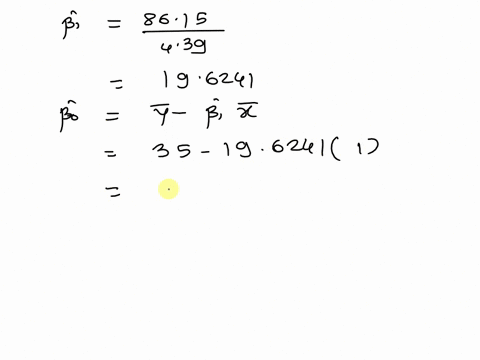 β̂₁ = 86.15 / 4.39
= 19.6241
β̂₀ = ȳ - β̂₁ x̄
= 35 - 19.6241 ( 1 )
=